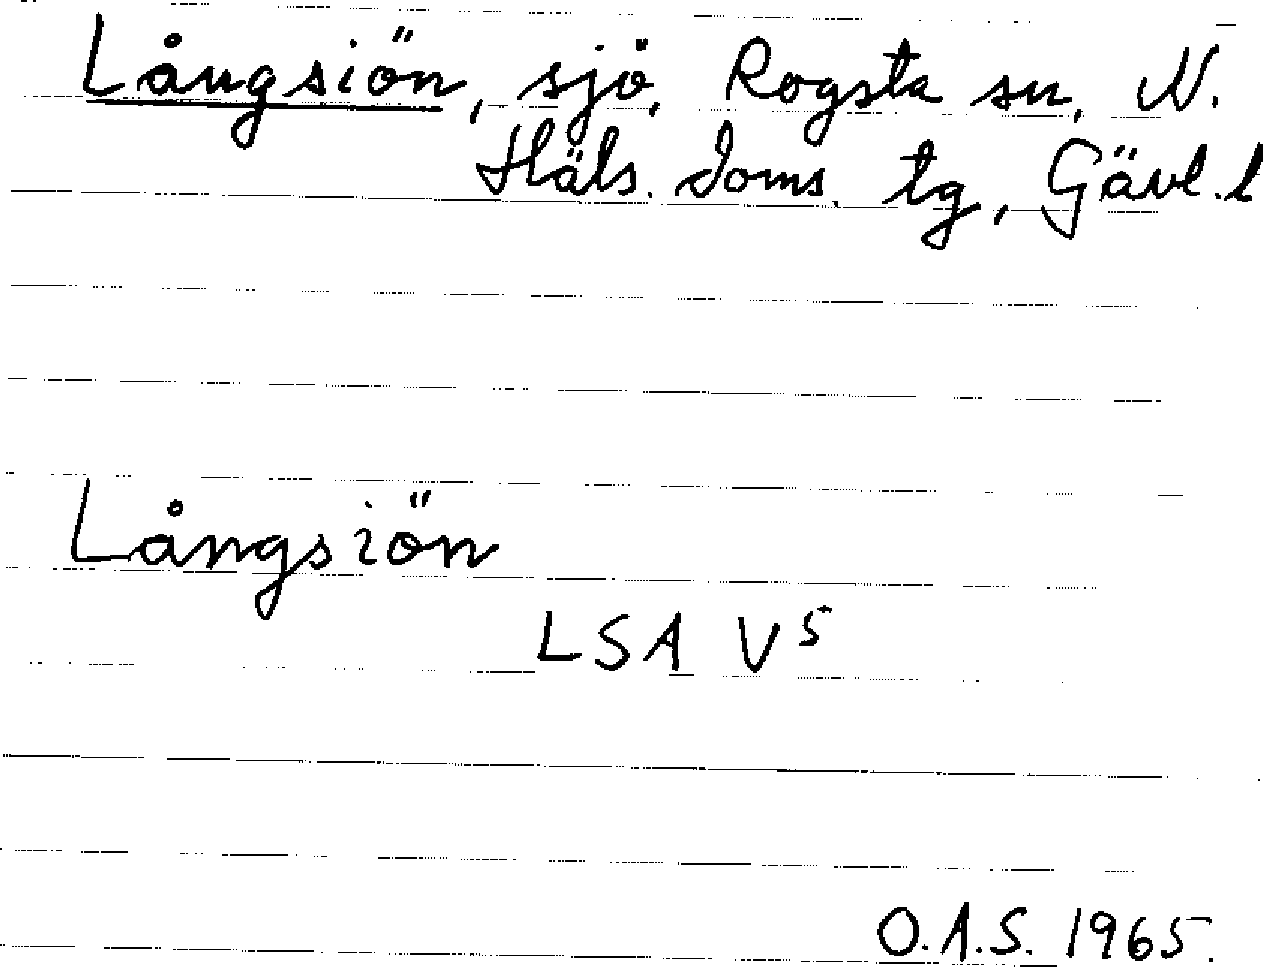 Långsiön, sjö, Rogsta sn, N.
Häls. doms. tg, Gävl. l
Långsiön
LSA V5
O.A.S. 1965.